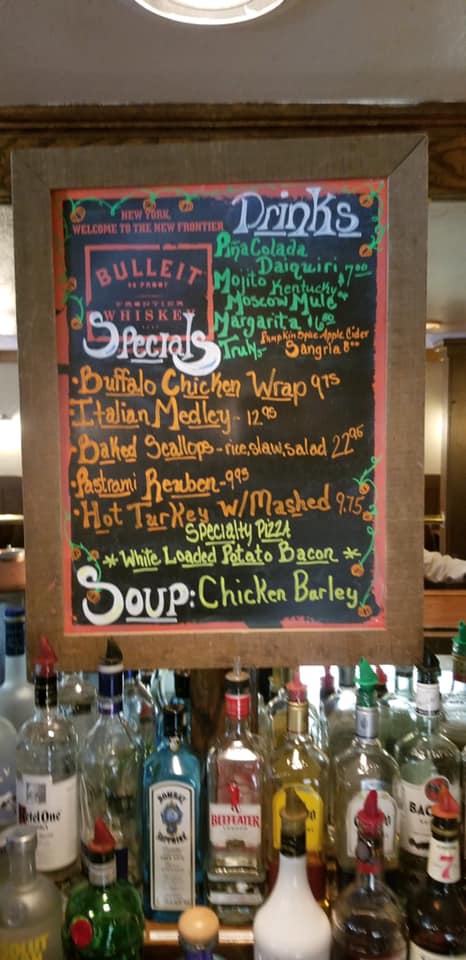 NEW YORK,
WELCOME TO THE NEW FRONTIER
BULLEIT
FRONTIER
WHISKEY
Drinks
Piña Colada
Daiquiri 7.00
Mojito Kentucky
Moscow Mule
Margarita $6.00
Pumpkin Spice Apple Cider
Sangria 8.00
Specials
• Buffalo Chicken Wrap 9.75
• Italian Medley - 12.95
• Baked Scallops - rice, slaw, salad 22.95
• Pastrami Reuben - 9.95
• Hot Turkey w/Mashed 9.75
Specialty Pizza
* White Loaded Potato Bacon *
Soup: Chicken Barley
Ketel One
BOMBAY
SAPPHIRE
BEEFEATER
LONDON
BAC
7
ABSOLUT